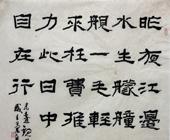 昨夜江邊
水生艨艟
艦一毛輕
來枉費推
力此日中
自在行